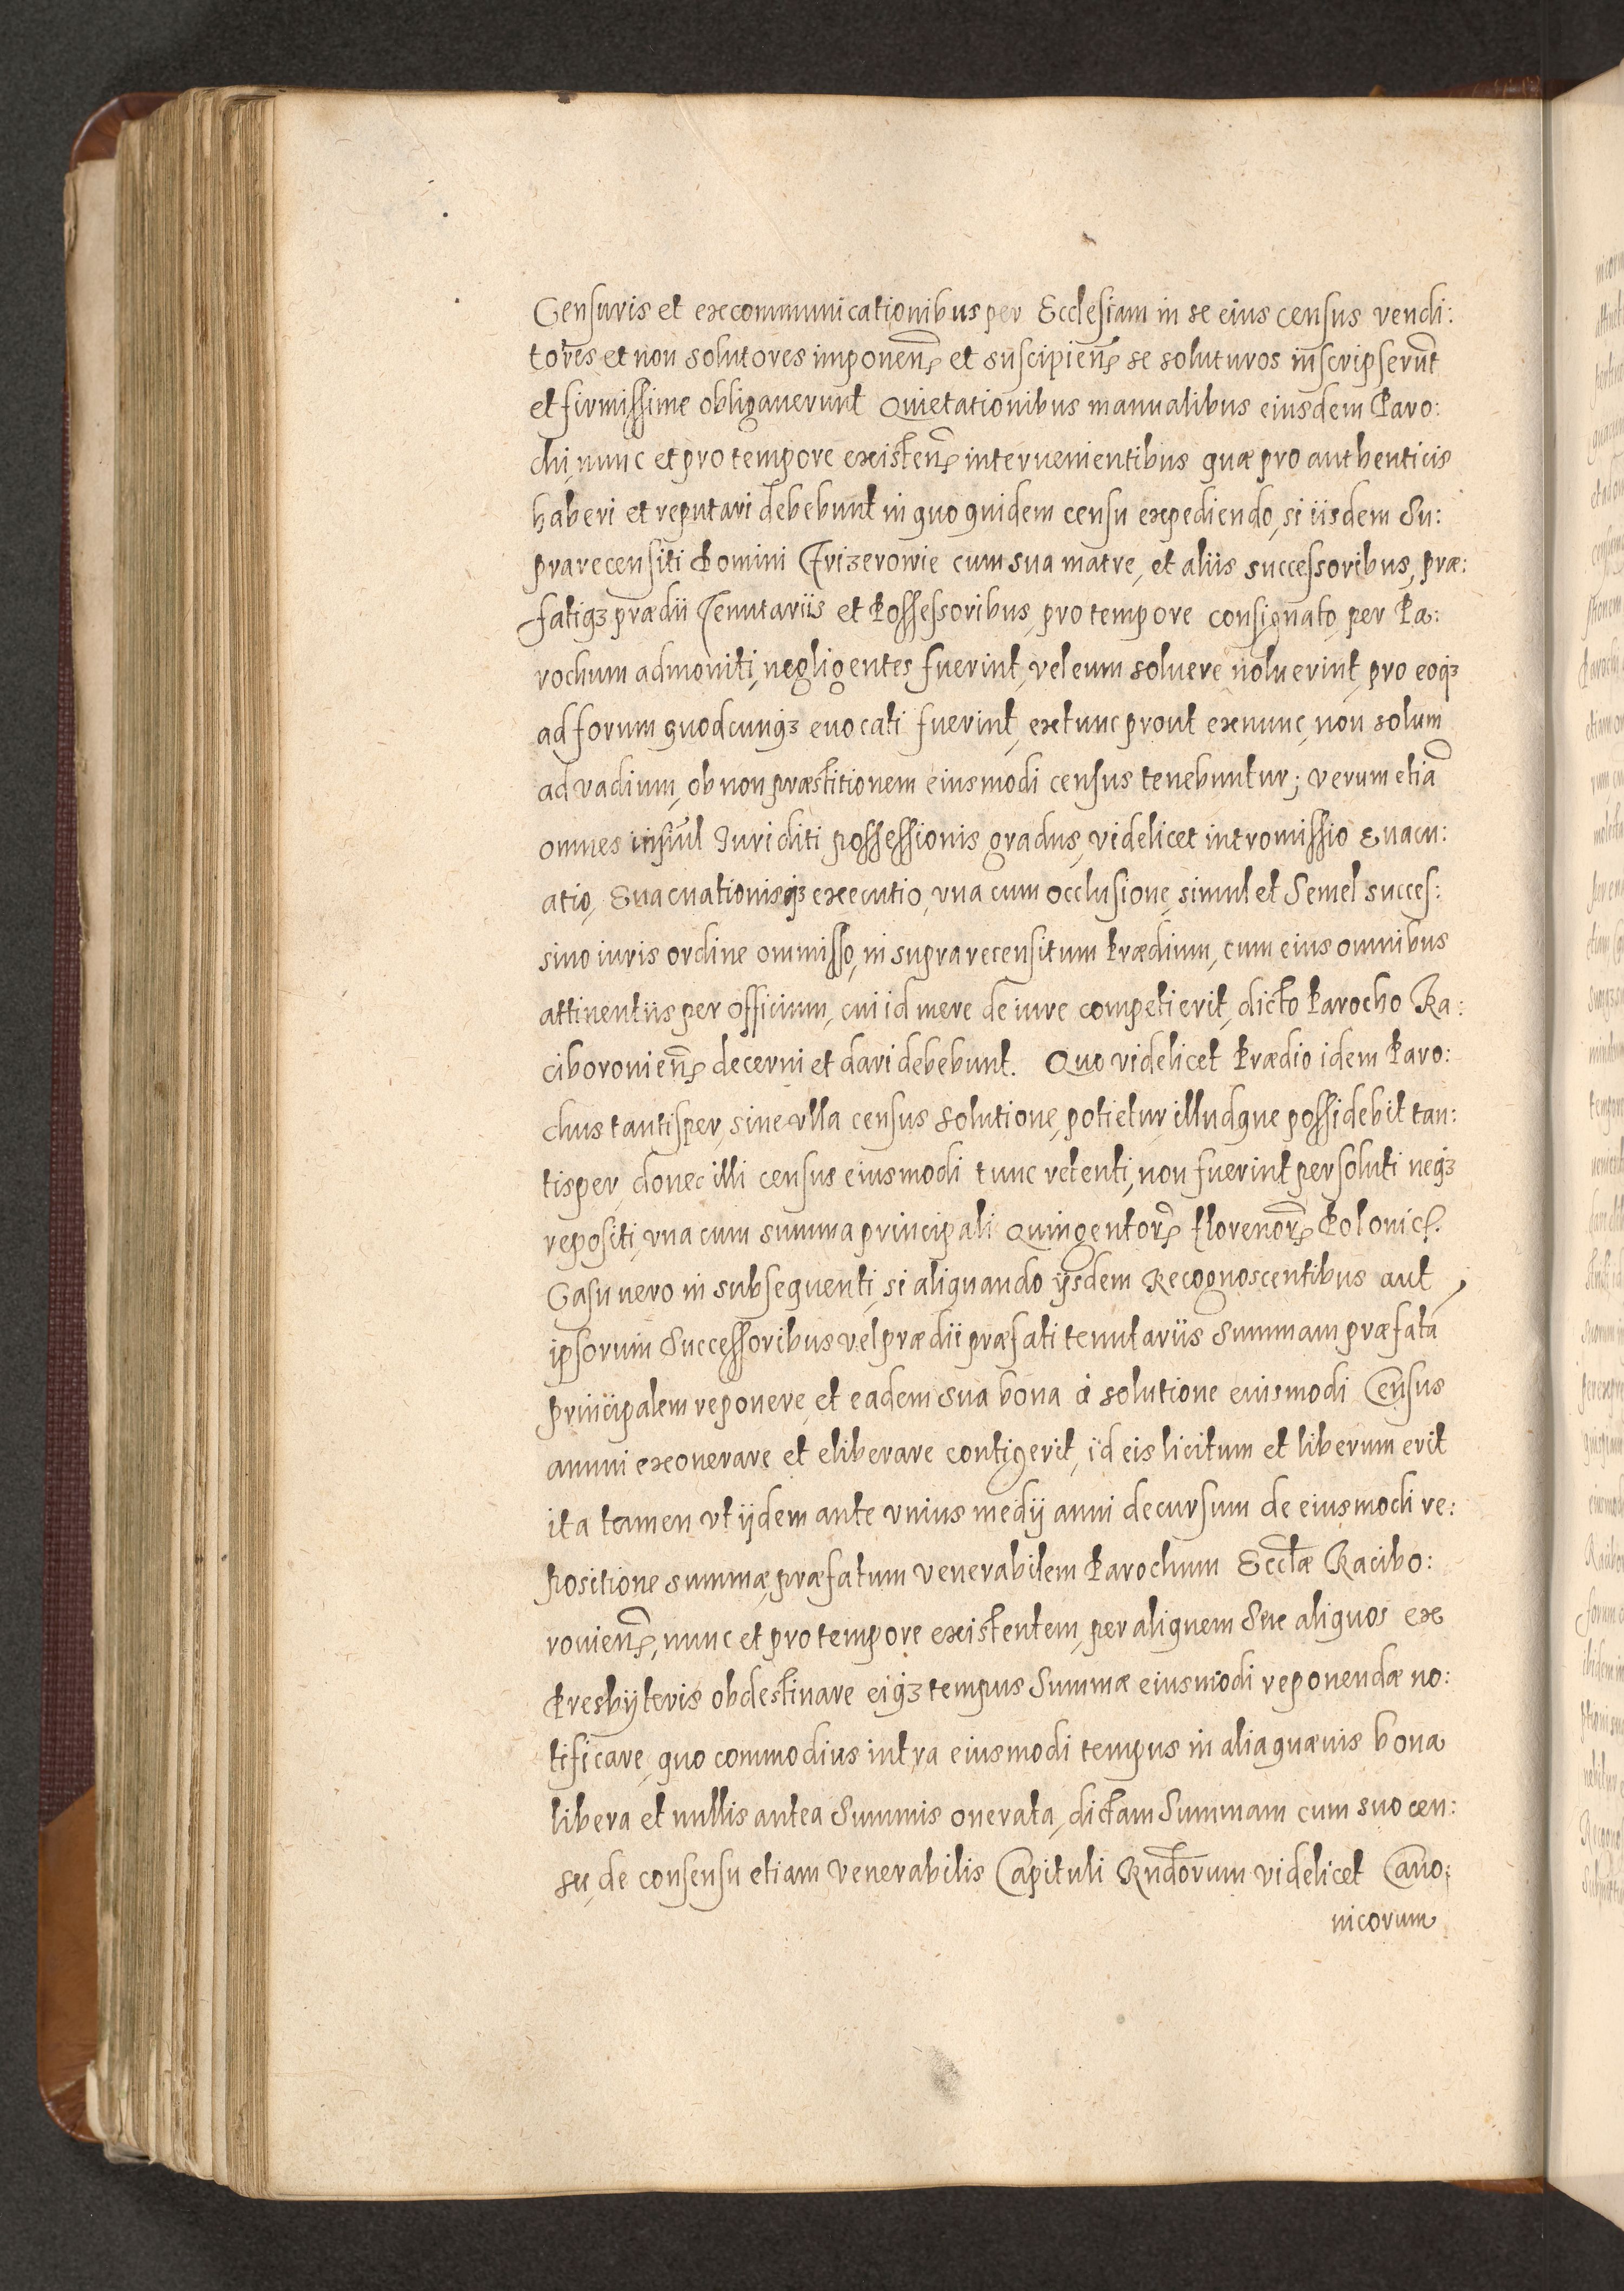 Censuris et excommunicationibus per Ecclesiam in se eius census vendi:
tores et non solutores imponen̄ et suscipien̄ se soluturos inscripserūt
et firmissime obligauerunt Quietationibus manualibus eiusdem Paro:
chi, nunc et pro tempore existen̄ interuenientibus quæ pro authenticis
haberi et reputari debebunt in quo quidem censu expediendo, si iisdem Su:
prarecensiti Domini Frizerowie cum sua matre, et aliis successoribus, præ:
fatiqꝫ prædii Tenutariis et Possessoribus, pro tempore consignato, per Pa:
rochum admoniti, negligentes fuerint, vel eum soluere noluerint, pro eoqꝫ
ad forum quodcunqꝫ euocati fuerint, extunc prout exnunc, non solum
ad vadium, ob non præstitionem eiusmodi census tenebuntur; verum etiā
omnes insimul Iuriditi possessionis gradus, videlicet intromissio Euacu:
atio, Euacuationisqꝫ executio, vna cum occlusione, simul et Semel succes:
siuo iuris ordine ommisso, in suprarecensitum Prædium, cum eius omnibus
attinentiis per Officium, cui id mere de iure competierit, dicto Parocho Ra:
ciboronien̄ decerni et dari debebunt. Quo videlicet Prædio idem Paro:
chus tantisper, sine vlla census solutione, potietur illudque possidebit tan:
tisper, donec illi census eiusmodi tunc retenti, non fuerint persoluti neqꝫ
repositi, vna cum summa principali Quingentor̄ florenor̄ Polonic.
Casu vero in subsequenti, si aliquando ijsdem Recognoscentibus aut
ipsorum Successoribus vel prædii præfati tenutariis Summam præfatā
principalem reponere, et eadem sua bona à solutione eiusmodi Census
annui exonerare et eliberare contigerit, id eis licitum et liberum erit
ita tamen vt ijdem ante vnius medij anni decursum de eiusmodi re:
positione summæ, præfatum venerabilem Parochum Eccl̄æ Racibo:
ronien̄, nunc et pro tempore existentem, per aliquem Sue aliquos ex
Presbyteris obdestinare eiqꝫ tempus Summæ eiusmodi reponendæ no:
tificare, quo commodius intra eiusmodi tempus in alia quæuis bona
libera et nullis antea Summis onerata, dictam Summam cum suo cen:
su, de consensu etiam venerabilis Capituli Rndorum videlicet Cano:
nicorum